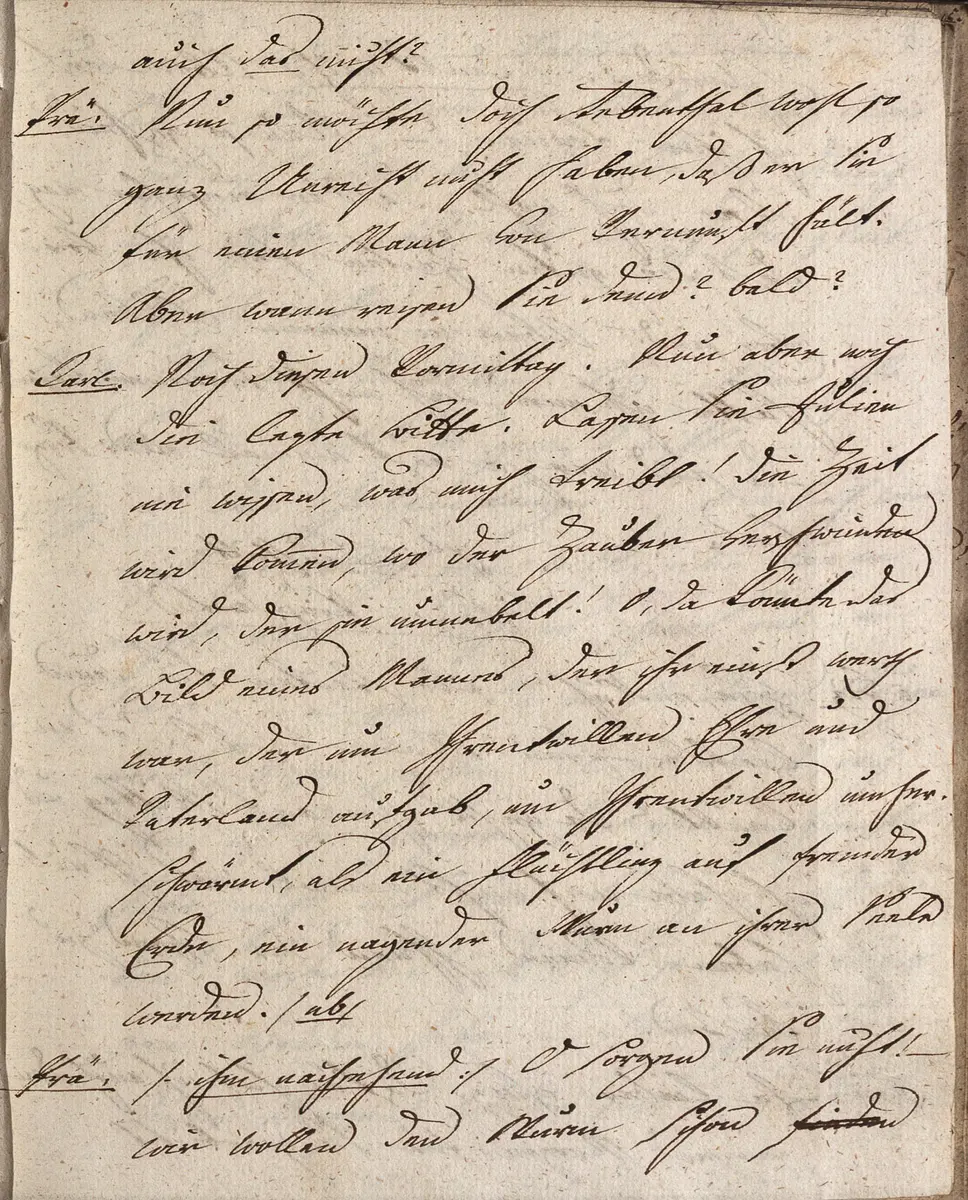 auch das nicht?
Prä: Nun so möchte doch Rebenthal wohl so
ganz Unrecht nicht haben, daß er Sie
für einen Mann von Vernunft hält.
Aber wann reisen Sie denn? bald?
Carl. Noch diesen Vormittag. Nun aber noch
die lezte Bitte. Lassen Sie Julien
nie wissen, was mich treibt! Die Zeit
wird kommen, wo der Zauber verschwinden
wird, der sie umnebelt! O, da könnte das
Bild eines Mannes, der ihr einst werth
war, der um Ihrentwillen Ehre und
Vaterland aufgab, um Ihrentwillen umher-
schwärmt, als ein Flüchtling auf fremder
Erde, ein nagender Wurm an ihrer Seele
werden. /ab/
Prä: /: ihm nachsehend :/ O sorgen Sie nicht! –
wir wollen den Wurm schon finden